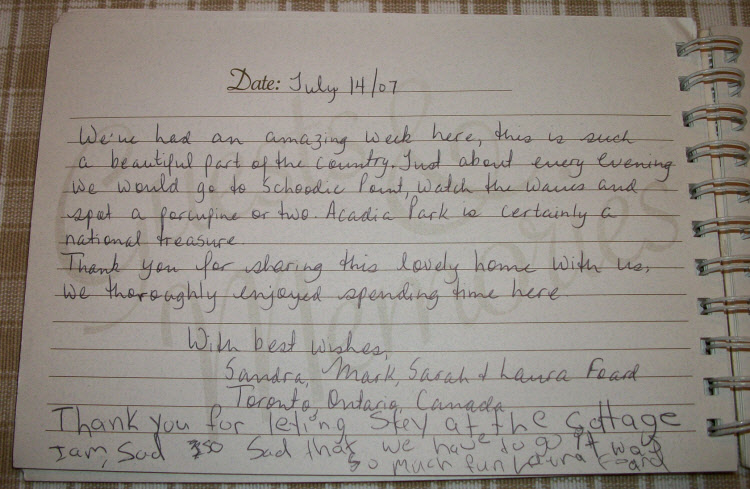 Date: July 14/07
We've had an amazing week here, this is such
a beautiful part of the country. Just about every evening
we would go to Schoodic Point, watch the waves and
spot a porcupine or two. Acadia Park is certainly a
national treasure.
Thank you for sharing this lovely home with us,
we thoroughly enjoyed spending time here.
With best wishes,
Sandra, Mark, Sarah & Laura Foard
Toronto Ontario, Canada
Thank you for leting stey at the cottage
I am, Sad so Sad that we have to go it was
So much fun Laura Foard
Guests &
Memories